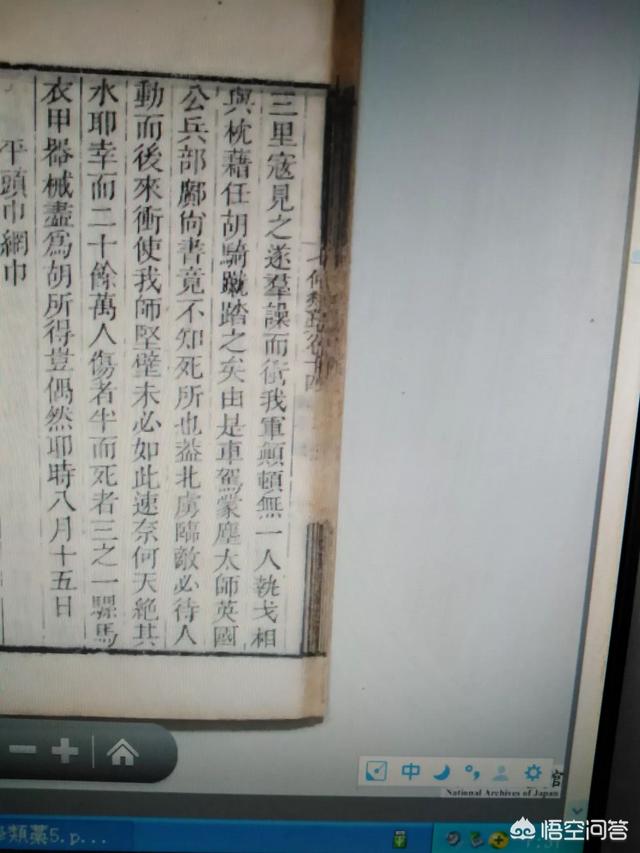 三里寇見之遂羣譟而衝我軍顛頓無一人執戈相
與枕藉任胡騎蹴踏之矣由是車駕蒙塵太師英國
公兵部鄺尚書竟不知死所也葢北虜臨敵必待人
動而後來衝使我師堅壁未必如此速奈何天絕其
水耶幸而二十餘萬人傷者半而死者三之一騾馬
衣甲器械盡爲胡所得豈偶然耶時八月十五日
平頭巾網巾
中
National Archives of Japan
類藁5.p...
悟空问答